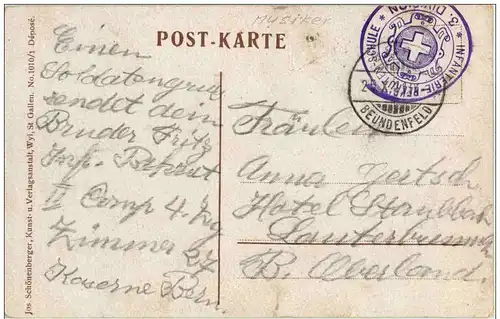 Musiker
POST-KARTE
Einen
Soldatengruss
sendet dein
Bruder Fritz
Inf. Rekrut
II Comp 4. Zg
Zimmer 27
Kaserne Bern.
INFANTERIE-REKRUTEN-SCHULE * 3. DIVISION *
BEUNDENFELD
Fräulein
Anna Gertsch
Hotel Staubbach
Lauterbrunnen
B. Oberland.
Jos Schönenberger, Kunst- u. Verlagsanstalt, Wyl, St Gallen. No. 1010/1 Déposé.